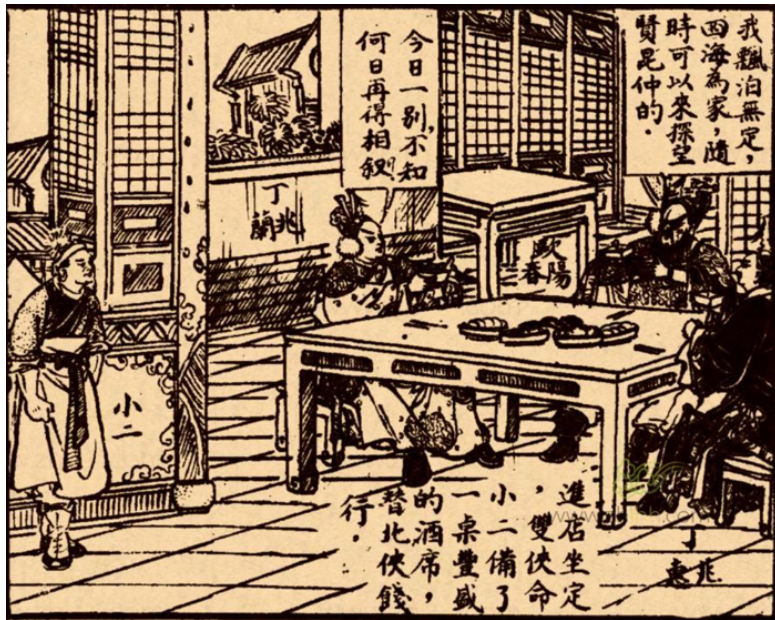 我飄泊無定,
四海為家,隨
時可以來探望
賢昆仲的.
今日一别,不知
何日再得相叙?
歐陽
春
丁兆蘭
小二
丁兆惠
進店坐定
,雙俠命
小二備了
一桌豐盛
的酒席,
替北俠餞
行.